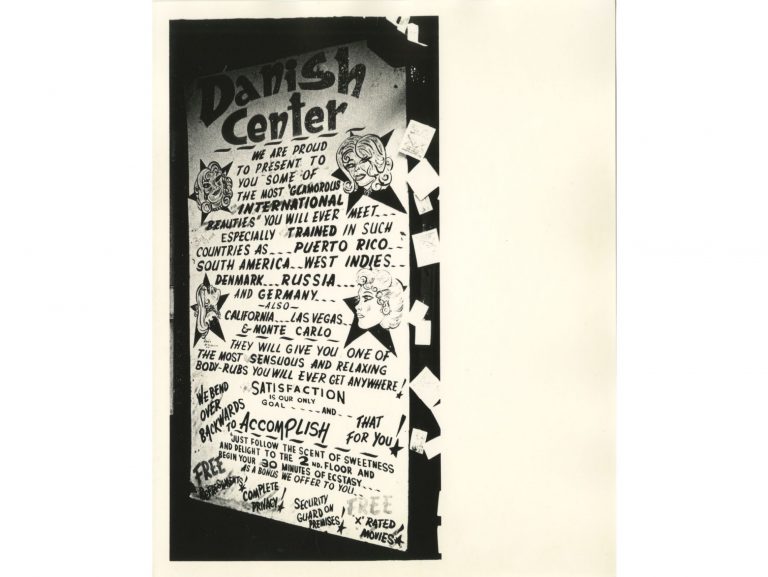 Danish
Center
WE ARE PROUD
TO PRESENT TO
YOU SOME OF
THE MOST "GLAMOROUS
INTERNATIONAL
BEAUTIES" YOU WILL EVER MEET...
ESPECIALLY TRAINED IN SUCH
COUNTRIES AS... PUERTO RICO...
SOUTH AMERICA... WEST INDIES...
DENMARK... RUSSIA...
AND GERMANY...
-ALSO-
CALIFORNIA... LAS VEGAS...
& MONTE CARLO
THEY WILL GIVE YOU ONE OF
THE MOST SENSUOUS AND RELAXING
BODY-RUBS YOU WILL EVER GET ANYWHERE!
SATISFACTION
IS OUR ONLY
GOAL... AND...
WE BEND
OVER
BACKWARDS
TO ACCOMPLISH
THAT
FOR YOU!
JUST FOLLOW THE SCENT OF SWEETNESS
AND DELIGHT TO THE 2ND. FLOOR AND
BEGIN YOUR 30 MINUTES OF ECSTASY...
AS A BONUS WE OFFER TO YOU...
FREE
REFRESHMENTS!
COMPLETE
PRIVACY!
SECURITY
GUARD ON
PREMISES
FREE
"X" RATED
MOVIES!